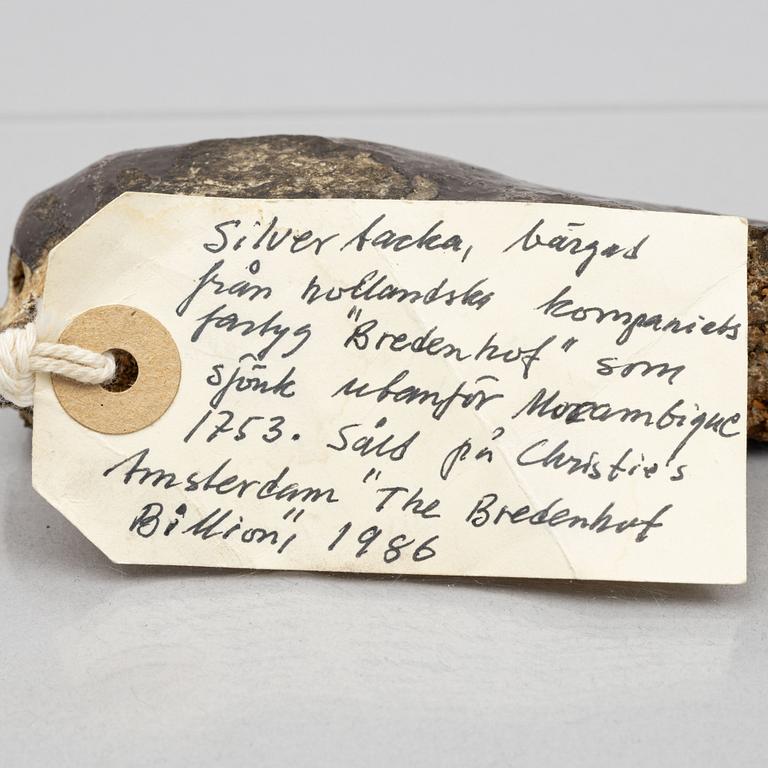 Silvertacka, bärgad
från hollandska kompaniets
fartyg "Bredenhof" som
sjönk utanför Mozambique
1753. Såld på Christie's
Amsterdam "The Bredenhof
Billion", 1986